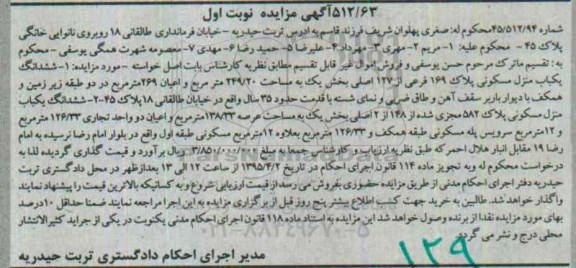 ۵۱۲/۶۳آگهی مزایده نوبت اول
شماره ۴۵/۵۱۲/۹۴محکوم له: صغری پهلوان شریف فرزند قاسم به ادرس تربت حیدریه - خیابان فرمانداری طالقانی ۱۸ روبروی نانوایی خانگی
پلاک ۴۵ - محکوم علیه: ۱-مریم ۲-مهری ۳-مهرداد ۴-علیرضا ۵-حمید رضا ۶-مهدی ۷-معصومه شهرت همگی یوسفی - محکوم
به: تقسیم ماترک مرحوم حسن یوسفی و فروش اموال غیر قابل تقسیم مطابق نظریه کارشناس بابت اصل خواسته - مورد مزایده: ۱-ششدانگ
یکباب منزل مسکونی پلاک ۱۶۹ فرعی از ۱۲۷ اصلی بخش یک به مساحت ۲۴۹/۲۰ متر مربع و اعیان ۲۶۹مترمربع در دو طبقه زیر زمین و
همکف با دیوار باربر سقف آهن و طاق ضربی و نمای شسته با قدمت حدود ۳۵ سال واقع در خیابان طالقانی ۱۸پلاک ۴۵-۲-ششدانگ یکباب
منزل مسکونی پلاک ۵۸۲ مجزی شده از ۱۴۸ از ۲ اصلی بخش یک به مساحت عرصه ۱۳۸/۳۳مترمربع و اعیان دو واحد تجاری ۱۲۶/۳۳ مترمربع
و ۱۲مترمربع سرویس پله مسکونی طبقه همکف و ۱۲۶/۳۳ مترمربع بعلاوه ۱۲مترمربع مسکونی طبقه اول واقع در بلوار امام رضا نرسیده به امام
رضا ۱۹ مقابل انبار هلال احمر که طبق نظریه ارزیاب و کارشناس جمعا به مبلغ ۳/۸۵۰/۰۰۰/۰۰۰ ریال برآورد و قیمت گذاری گردیده لذا به
درخواست محکوم له وبه تجویز ماده ۱۱۴ قانون اجرای احکام در تاریخ ۱۳۹۵/۴/۲ از ساعت ۱۲ الی ۱۳ بعدازظهر در محل دادگستری تربت
حیدریه دفتر اجرای احکام مدنی از طریق مزایده حضوری بفروش می رسد از قیمت ارزیابی شروع و به کسانیکه بالاترین قیمت را پیشنهاد نمایند
واگذار خواهد شد. طالبین به خرید جهت کسب اطلاع بیشتر پنج روز قبل از برگزاری مزایده به این اجرا مراجعه نمایند ضمنا حداقل ۱۰درصد
بهای مورد مزایده نقدا از برنده وصول خواهد شد این مزایده به استناد ماده ۱۱۸ قانون اجرای احکام مدنی یکنوبت در یکی از جراید کثیرالانتشار
محلی درج و نشر می گردد.
مدیر اجرای احکام دادگستری تربت حیدریه
۱۲۹
۰۲۱-۸۸۳۴۹۶۷۰-۵